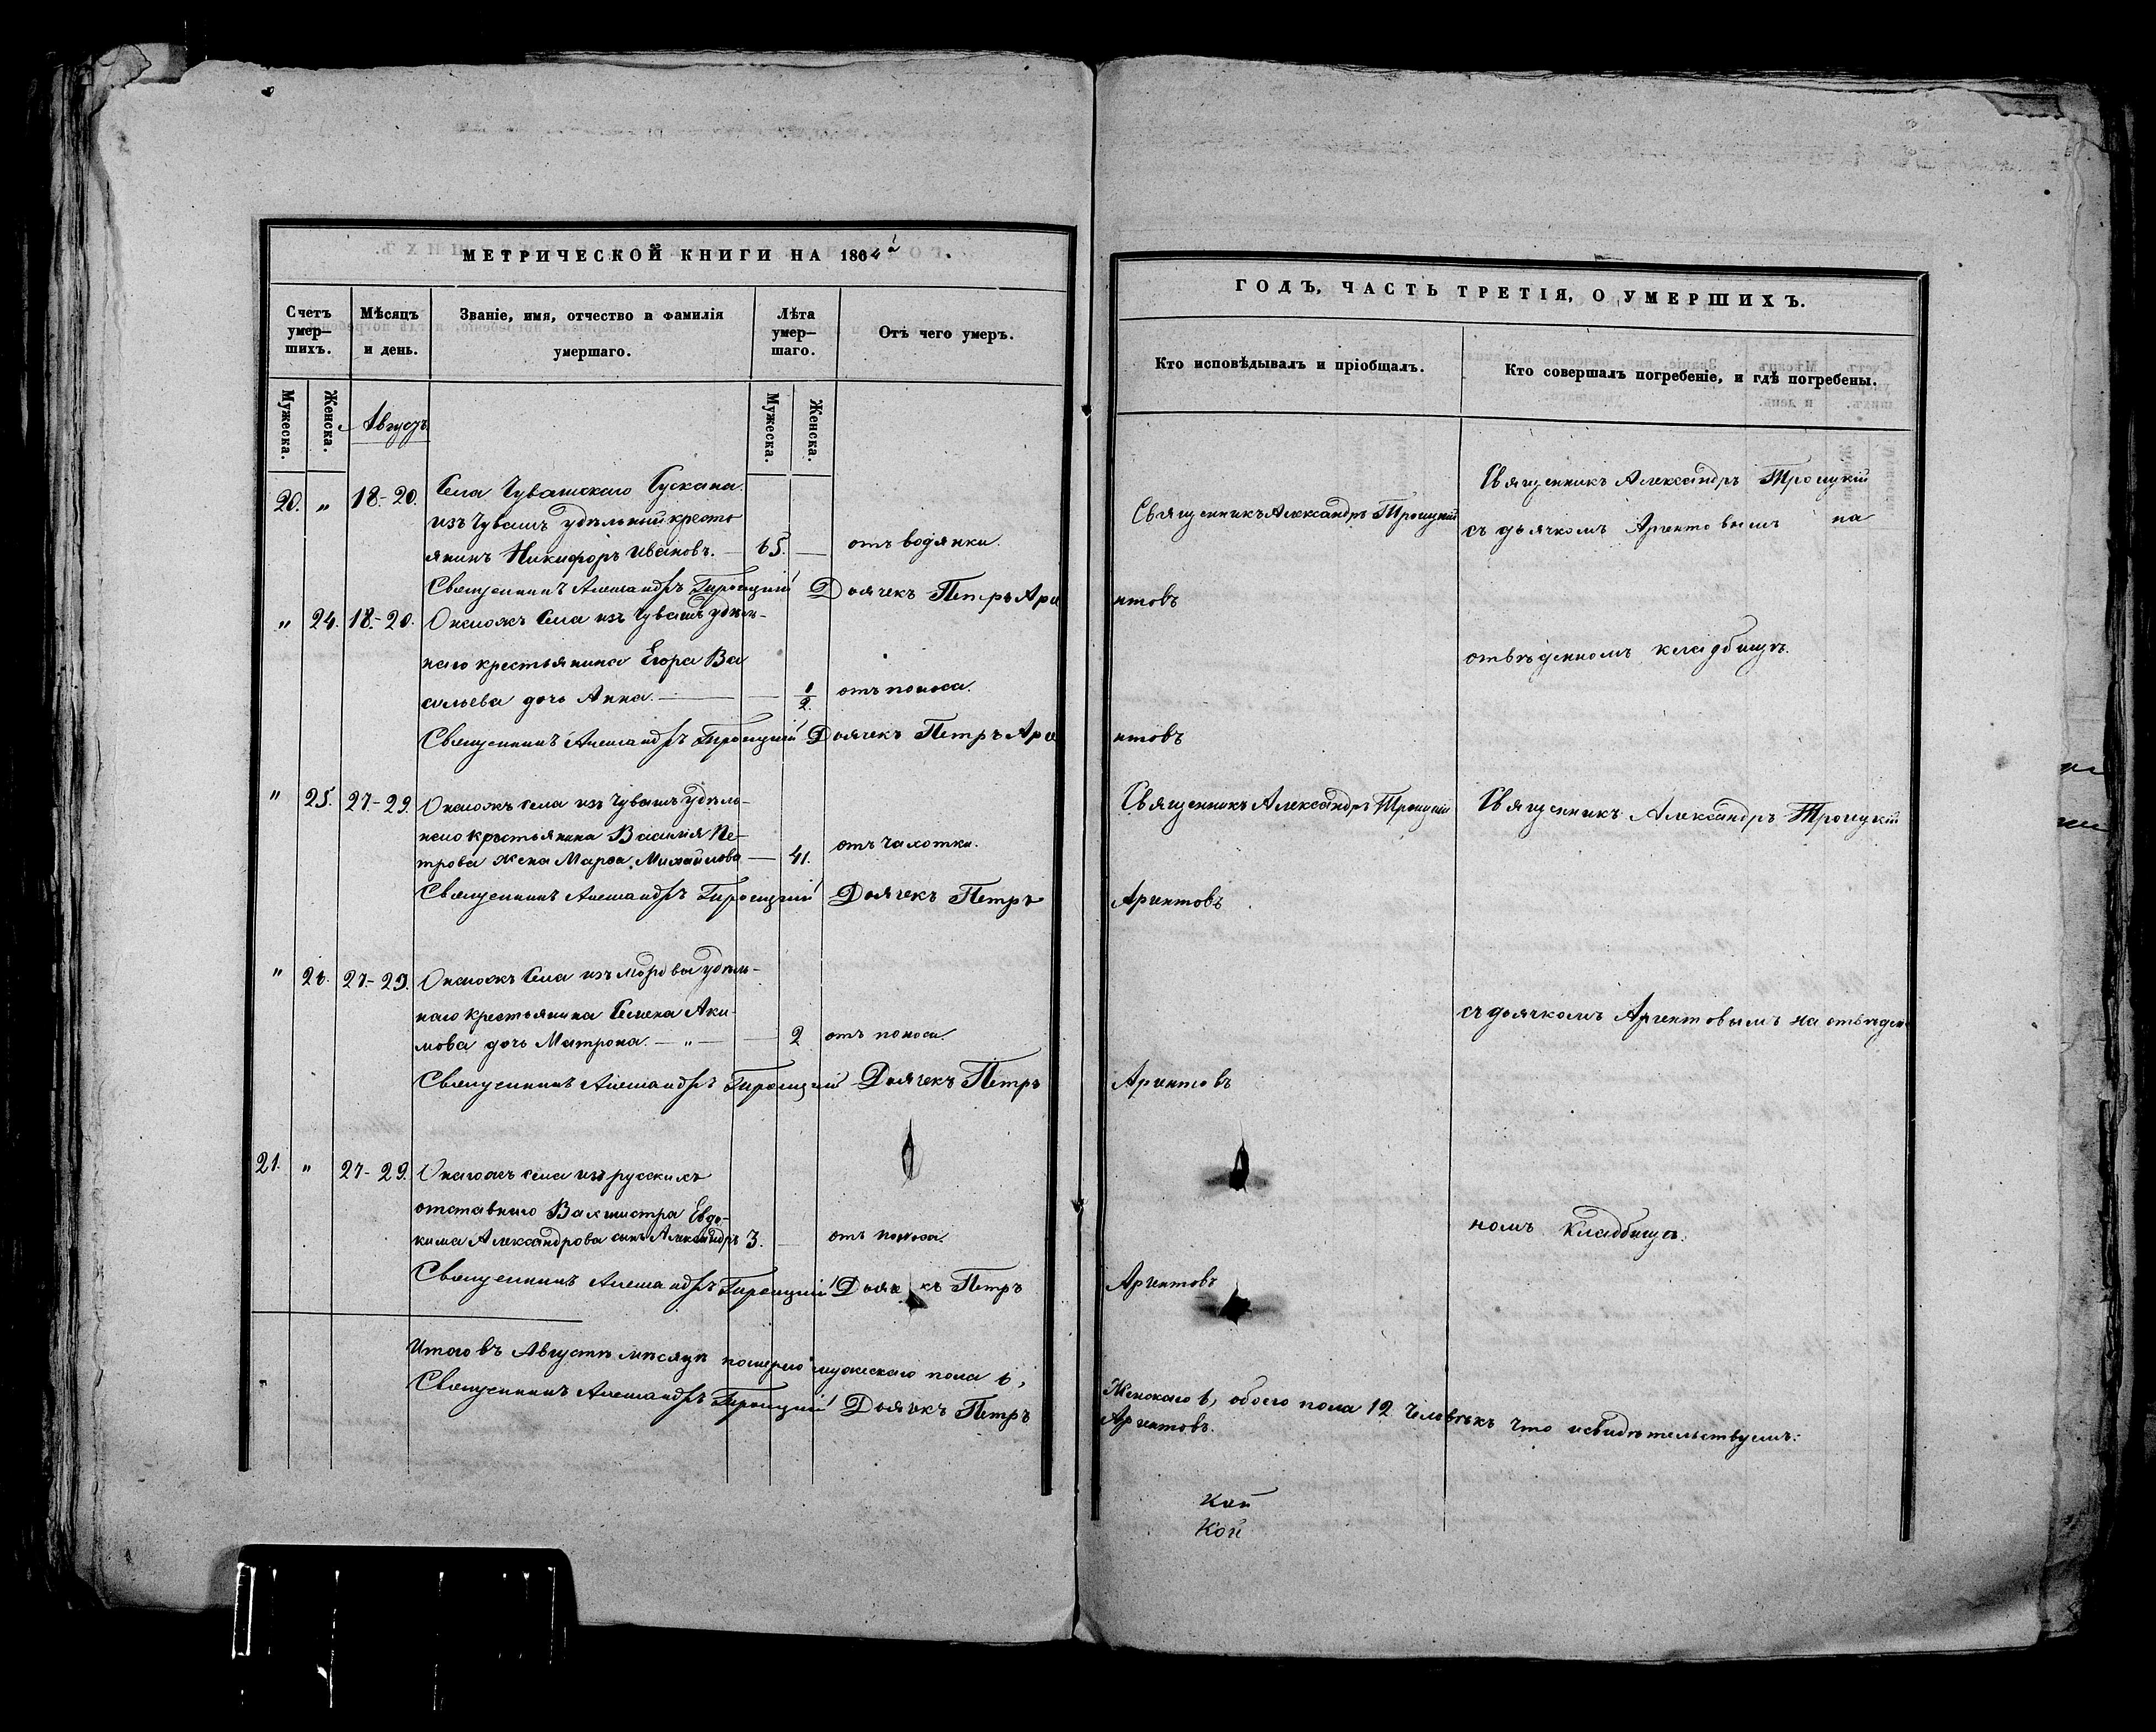 МЕТРИЧЕСКОЙ КНИГИ НА 1864й
Счетъ умер-шихъ.
Мѣсяцъ и день.
Званіе, имя, отчество и фамилія умершаго.
Лѣта умер-шаго.
Отъ чего умеръ.
Мужеска.
Женска.
Августъ
Мужеска.
Женска.
20. " 18-20. Села Чувашскаго Сускана
изъ Чувашъ удѣльный кресть
янинъ Никифоръ Ивановъ. — 65. — отъ водянки.
Священникъ Александръ Троицкій Дьячекъ Петръ Арге
" 24. 18-20. Онагожъ Села изъ Чувашъ удѣль-
наго крестьянина Егора Ва
сильева дочь Анна. — 1/2. отъ поноса.
Священникъ Александръ Троицкій Дьячекъ Петръ Арге
" 25. 27-29. Онагожъ села изъ Чувашъ удѣль-
наго крестьянина Василія Пе-
трова жена Марѳа Михайлова — 41. отъ чахотки.
Священникъ Александръ Троицкій Дьячекъ Петръ
" 26. 27-29. Онагожъ Села изъ мордвы удѣль-
наго крестьянина Семена Аки-
мова дочь Матрона. — " — 2 отъ поноса.
Священникъ Александръ Троицкій Дьячекъ Петръ
21. " 27-29. Онагожъ села изъ русскихъ
отставнаго Вахмистра Евдо-
кима Александрова сынъ Александръ 3. — отъ поноса.
Священникъ Александръ Троицкій Дьячекъ Петръ
Итого въ Августѣ мѣсяцѣ померло мужескаго пола 6,
Священникъ Александръ Троицкій Дьячекъ Петръ
ГОДЪ, ЧАСТЬ ТРЕТІЯ, О УМЕРШИХЪ.
Кто исповѣдывалъ и пріобщалъ.
Кто совершалъ погребеніе, и гдѣ погребены.
Священникъ Александръ Троицкій
Священникъ Александръ Троицкій
съ дьячкомъ Аргентовымъ на
нтовъ
отвѣденномъ кладбищѣ.
нтовъ
Священникъ Александръ Троицкій
Священникъ Александръ Троицкій
Аргентовъ
съ дьячкомъ Аргентовымъ на отвѣден
Аргентовъ
номъ Кладбищѣ.
Аргентовъ
Женскаго 6, обоего пола 12 человѣкъ что и свидѣтельствуемъ:
Аргентовъ.
кой
кой